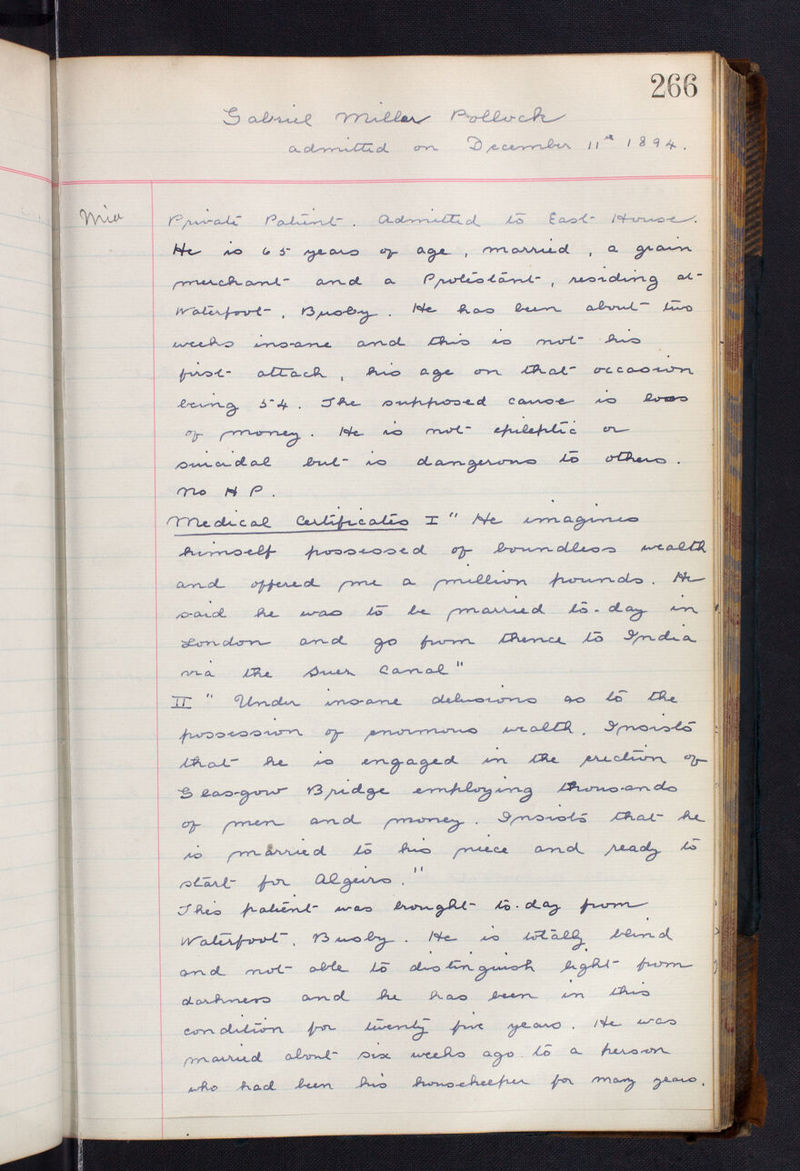 266
Gabriel Miller Pollock
admitted on December 11th 1894.
Private Patient. Admitted to East House.
He is 65 years of age, married, a grain
merchant and a Protestant, residing at
Waterfoot, Busby. He has been about two
weeks insane and this is not his
first attack, his age on that occasion
being 54. The supposed cause is loss
of money. He is not epileptic or
suicidal but is dangerous to others.
No H P.
Medical Certificates I " He imagines
himself possessed of boundless wealth
and offered me a million pounds. He
said he was to be married to-day in
London and go from thence to India
via the Suez Canal"
II " Under insane delusions as to the
possession of enormous wealth. Insists
that he is engaged in the erection of
Glasgow Bridge employing thousands
of men and money. Insists that he
is married to his niece and ready to
start for Algeirs."
This patient was brought to-day from
Waterfoot, Busby. He is totally blind
and not able to distinguish light from
darkness and he has been in this
condition for twenty five years. He was
married about six weeks ago to a person
who had been his housekeeper for many years.